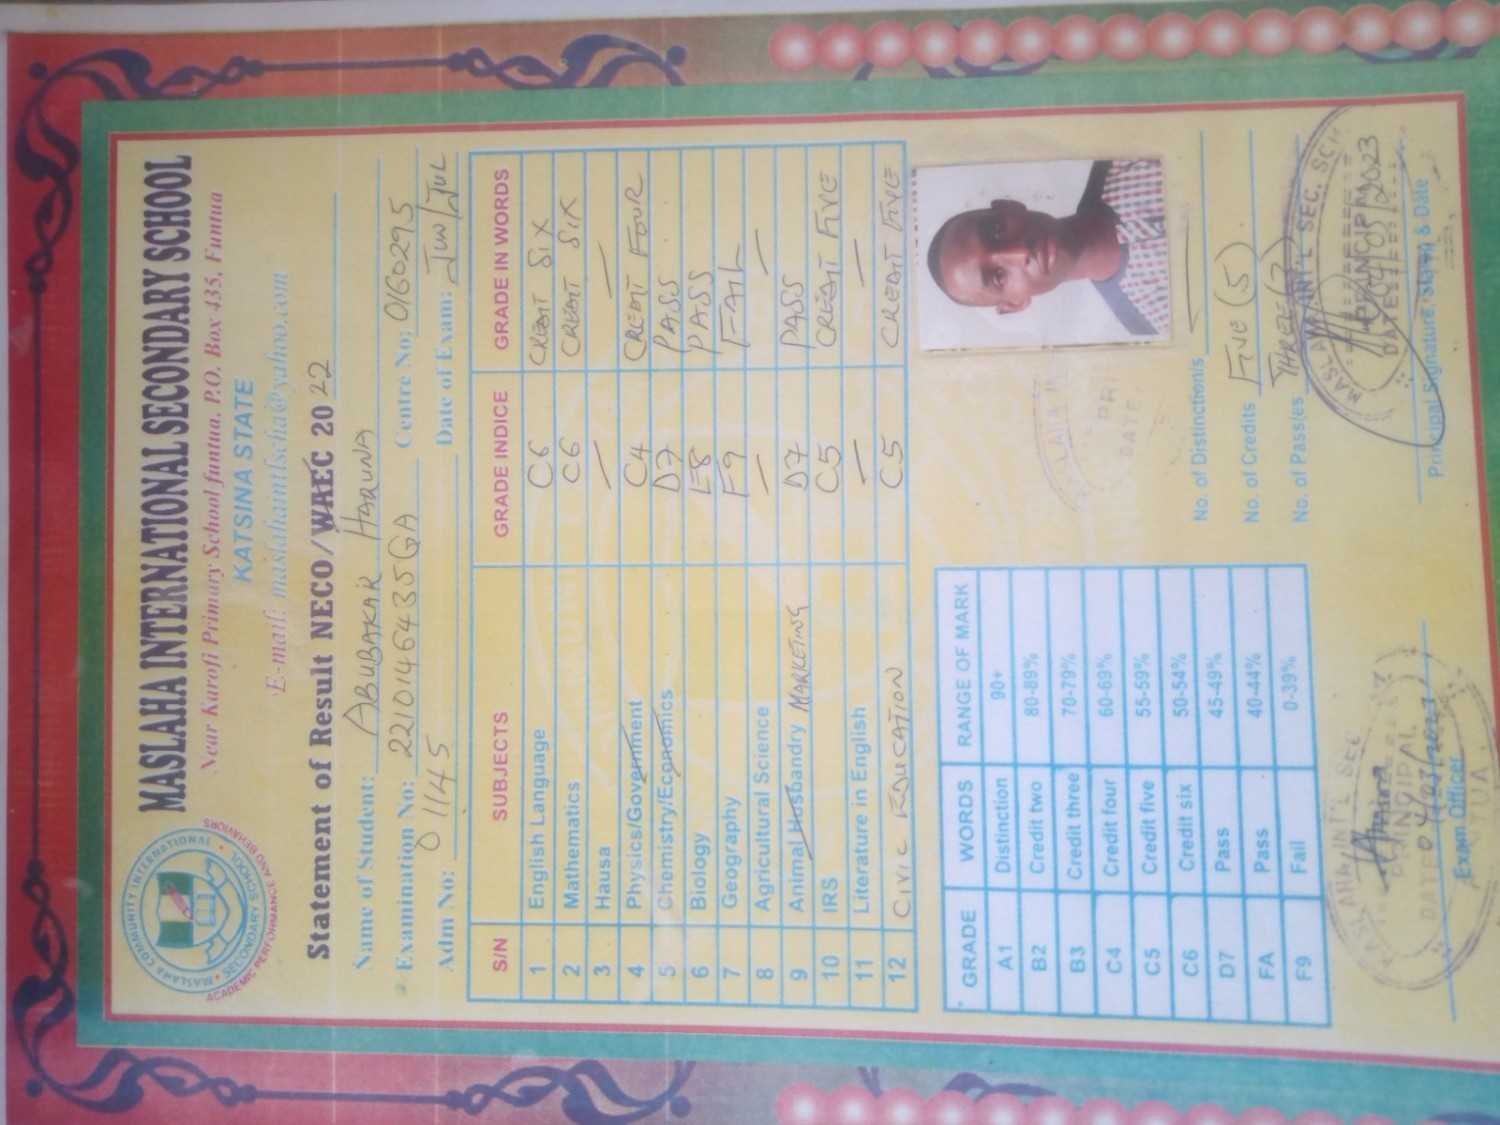 MASLAHA INTERNATIONAL SECONDARY SCHOOL
Near Karofi Primary School funtua. P.O. Box 435, Funtua
KATSINA STATE
E-mail: maslahaintlscha@yahoo.com
MASLAHA COMMUNITY INTERNATIONAL
SECONDARY SCHOOL
ACADEMIC PERFORMANCE AND BEHAVIORS
Statement of Result NECO/WAEC 2022
Name of Student: ABUBAKAR HARUNA
Examination No: 2210146435GA Centre No: 0160295
Adm No: 01145 Date of Exam: JUN/JUL
S/N SUBJECTS GRADE INDICE GRADE IN WORDS
1 English Language C6 CREDIT SIX
2 Mathematics C6 CREDIT SIX
3 Hausa — —
4 Physics/Government C4 CREDIT FOUR
5 Chemistry/Economics D7 PASS
6 Biology E8 PASS
7 Geography F9 FAIL
8 Agricultural Science — —
9 Animal Husbandry MARKETING D7 PASS
10 IRS C5 CREDIT FIVE
11 Literature in English — —
12 CIVIC EDUCATION C5 CREDIT FIVE
GRADE WORDS RANGE OF MARK
A1 Distinction 90+
B2 Credit two 80-89%
B3 Credit three 70-79%
C4 Credit four 60-69%
C5 Credit five 55-59%
C6 Credit six 50-54%
D7 Pass 45-49%
FA Pass 40-44%
F9 Fail 0-39%
No. of Distinction/s —
No. of Credits Five (5)
No. of Passies THREE (3)
PRINCIPAL
DATE 04/05/2023
Exam Officer
MASLAHA INT'L SEC. SCH
DATE 04/05/2023
Principal Signature Stamp & Date